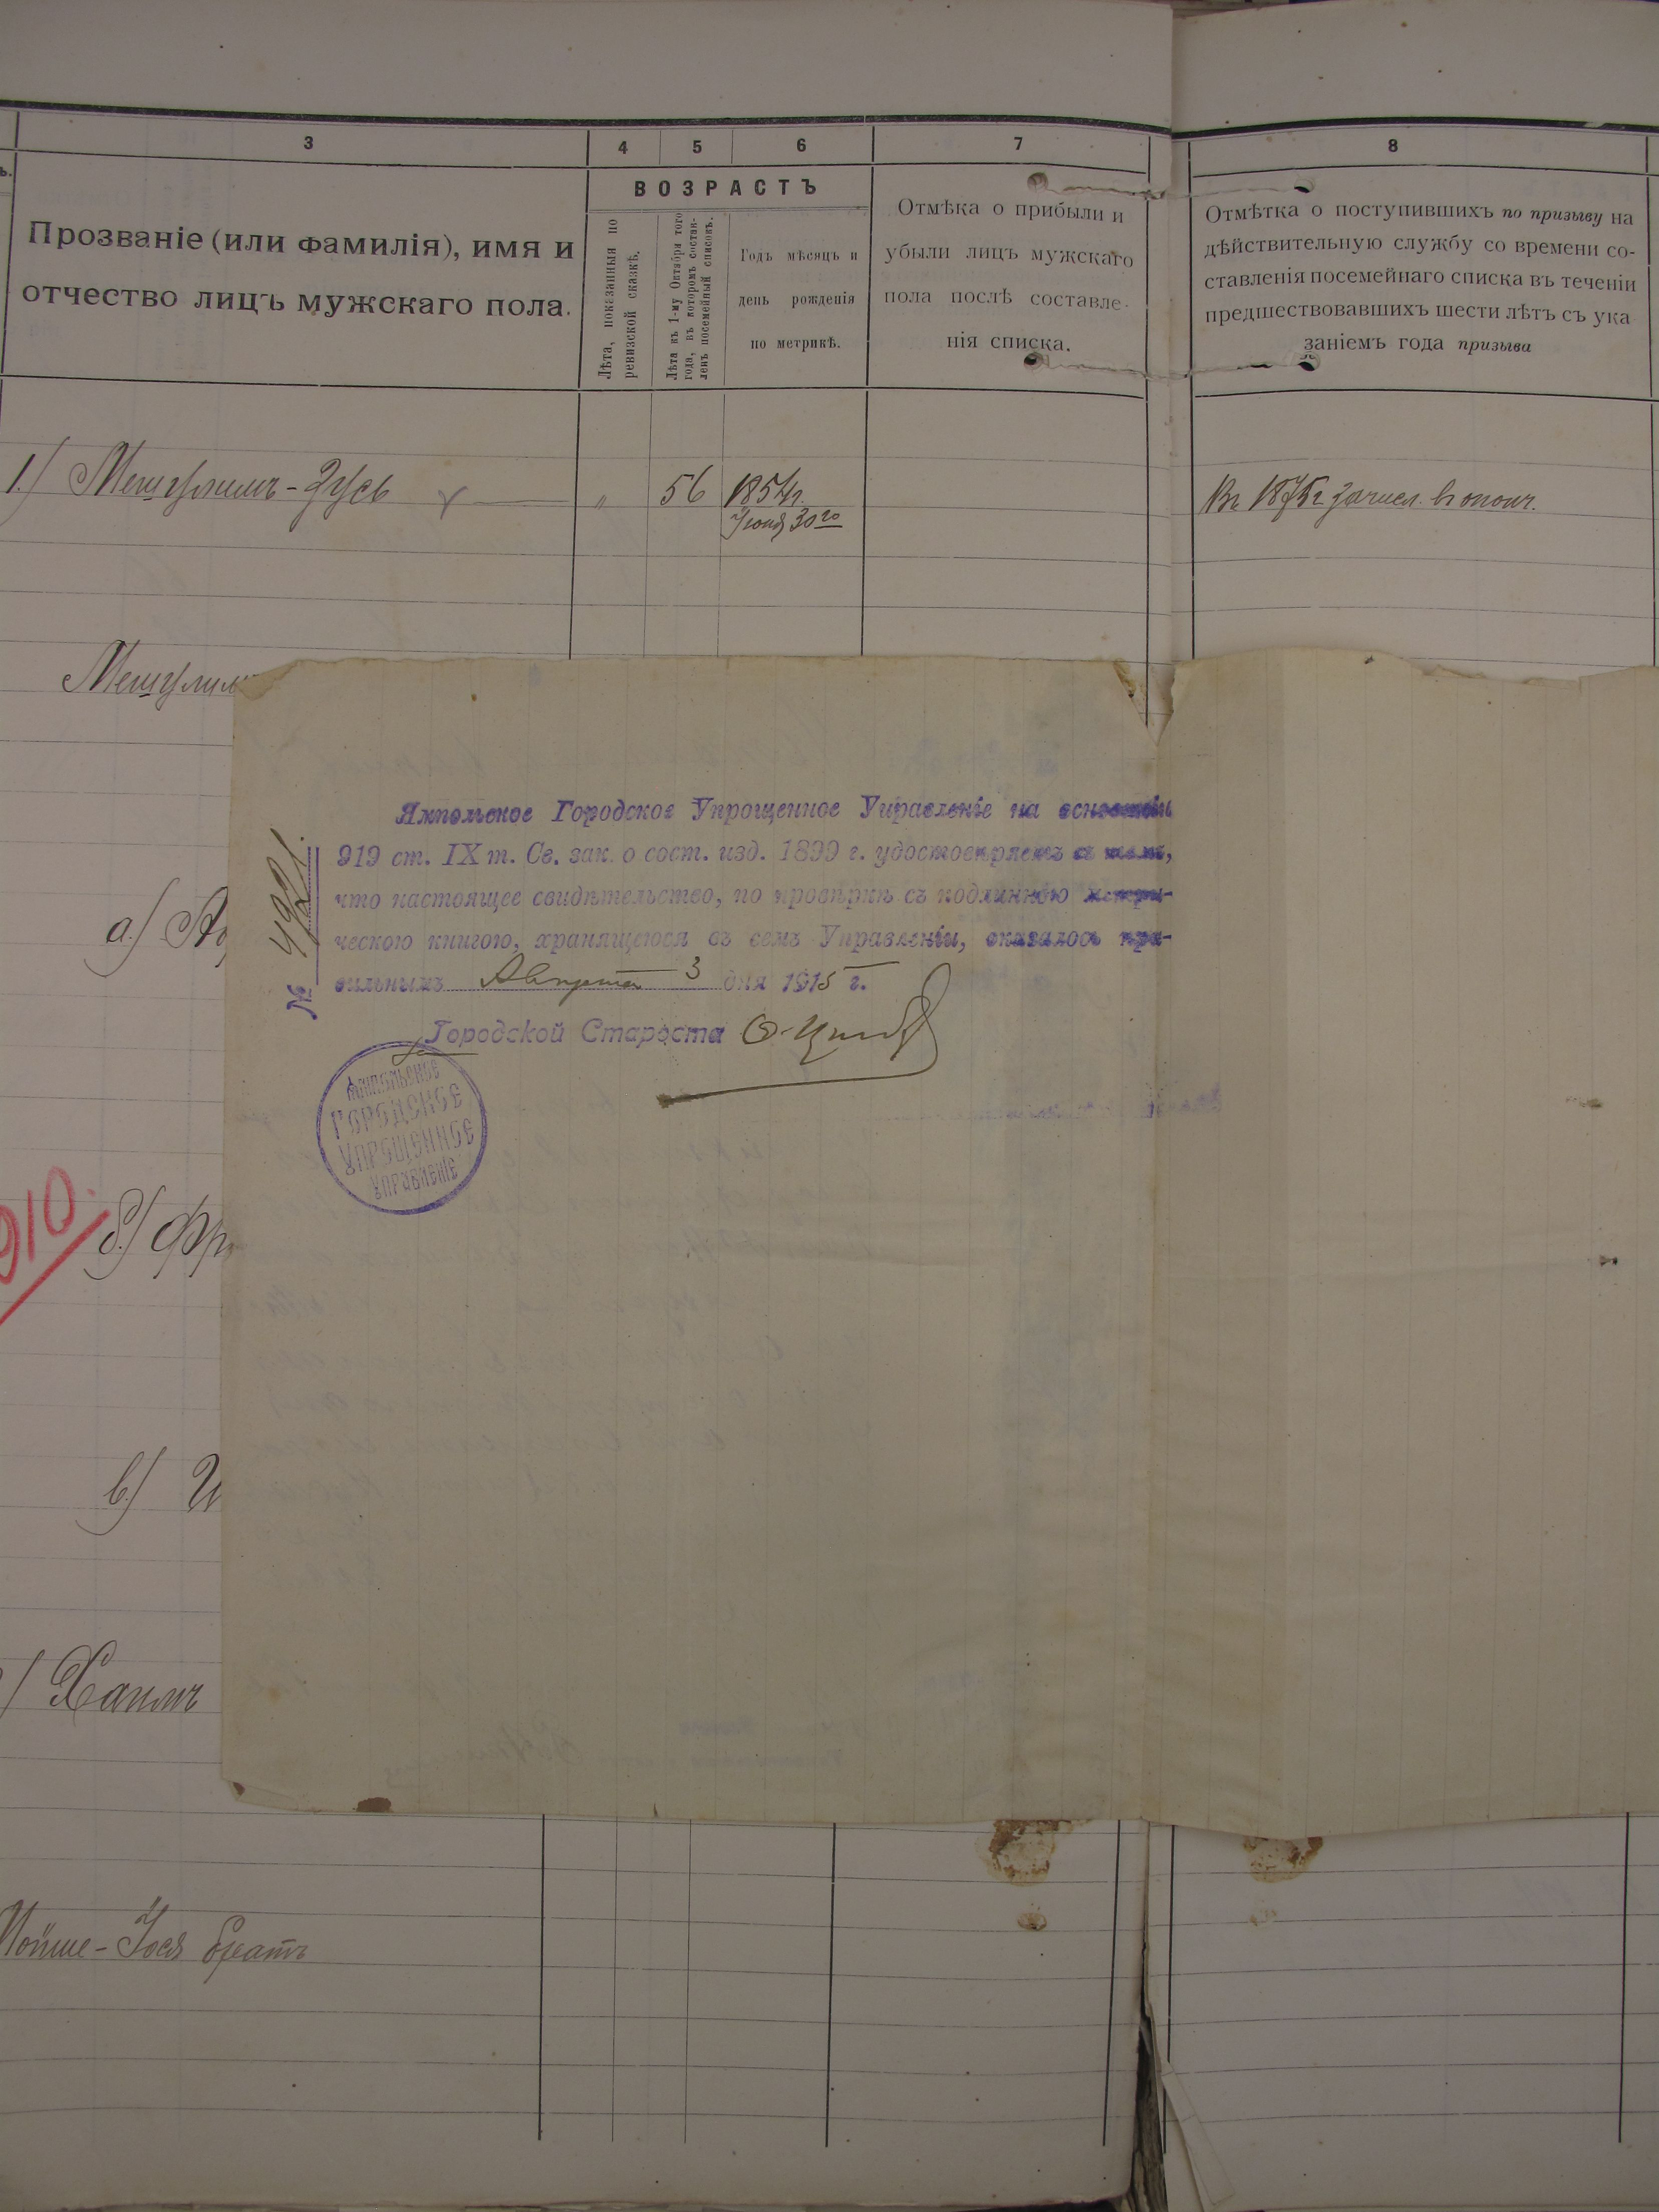 3
4
5
6
7
8
ъ.
Прозваніе (или фамилія), имя и
отчество лицъ мужскаго пола.
ВОЗРАСТЪ
Лѣта, показанныя по
ревизской сказкѣ.
Лѣта къ 1-му Октября того
года, въ которомъ состав-
ленъ посемейный списокъ.
Годъ мѣсяцъ и
день рожденія
по метрикѣ.
Отмѣка о прибыли и
убыли лицъ мужскаго
пола послѣ составле-
нія списка.
Отмѣтка о поступившихъ по призыву на
дѣйствительную службу со времени со-
ставленія посемейнаго списка въ теченіи
предшествовавшихъ шести лѣтъ съ ука
заніемъ года призыва
1.) Мешулимъ-Зусь
"
56
1854 г.
Іюня 30го
Въ 1875 г зачисл. въ ополч.
Мешулимъ
Ямпольское Городское Упрощенное Управленіе на основаніи
919 ст. IX т. Св. зак. о сост. изд. 1899 г. удостовѣряетъ въ томъ,
что настоящее свидѣтельство, по провѣркѣ съ подлинною метри-
ческою книгою, хранящеюся въ семъ Управленіи, оказалось пра-
вильнымъ Августа 3 дня 1915 г.
№
Городской Староста
Ямпольское
Городское
Упрощенное
Управленіе
а.)
910.
б.) Фр
в.) И
) Хаимъ
Мойше-Іося братъ